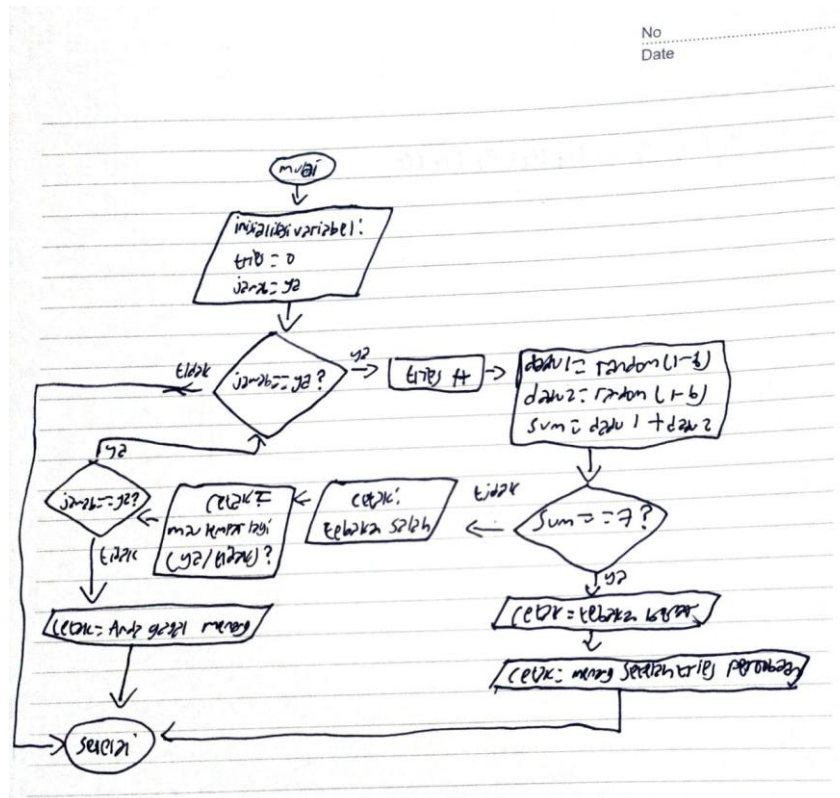 No
Date
mulai
inisialisasi variabel:
trial = 0
jawab = ya
jawab == ya?
tidak
ya
trial ++
dadu1 = random (1-6)
dadu2 = random (1-6)
sum = dadu 1 + dadu 2
sum == 7?
tidak
cetak:
tebakan salah
cetak:
mau tebak lagi
(ya/tidak)?
jawab == ya?
ya
tidak
cetak = Anda gagal menang
ya
cetak = tebakan benar
cetak = menang setelah trial percobaan
selesai